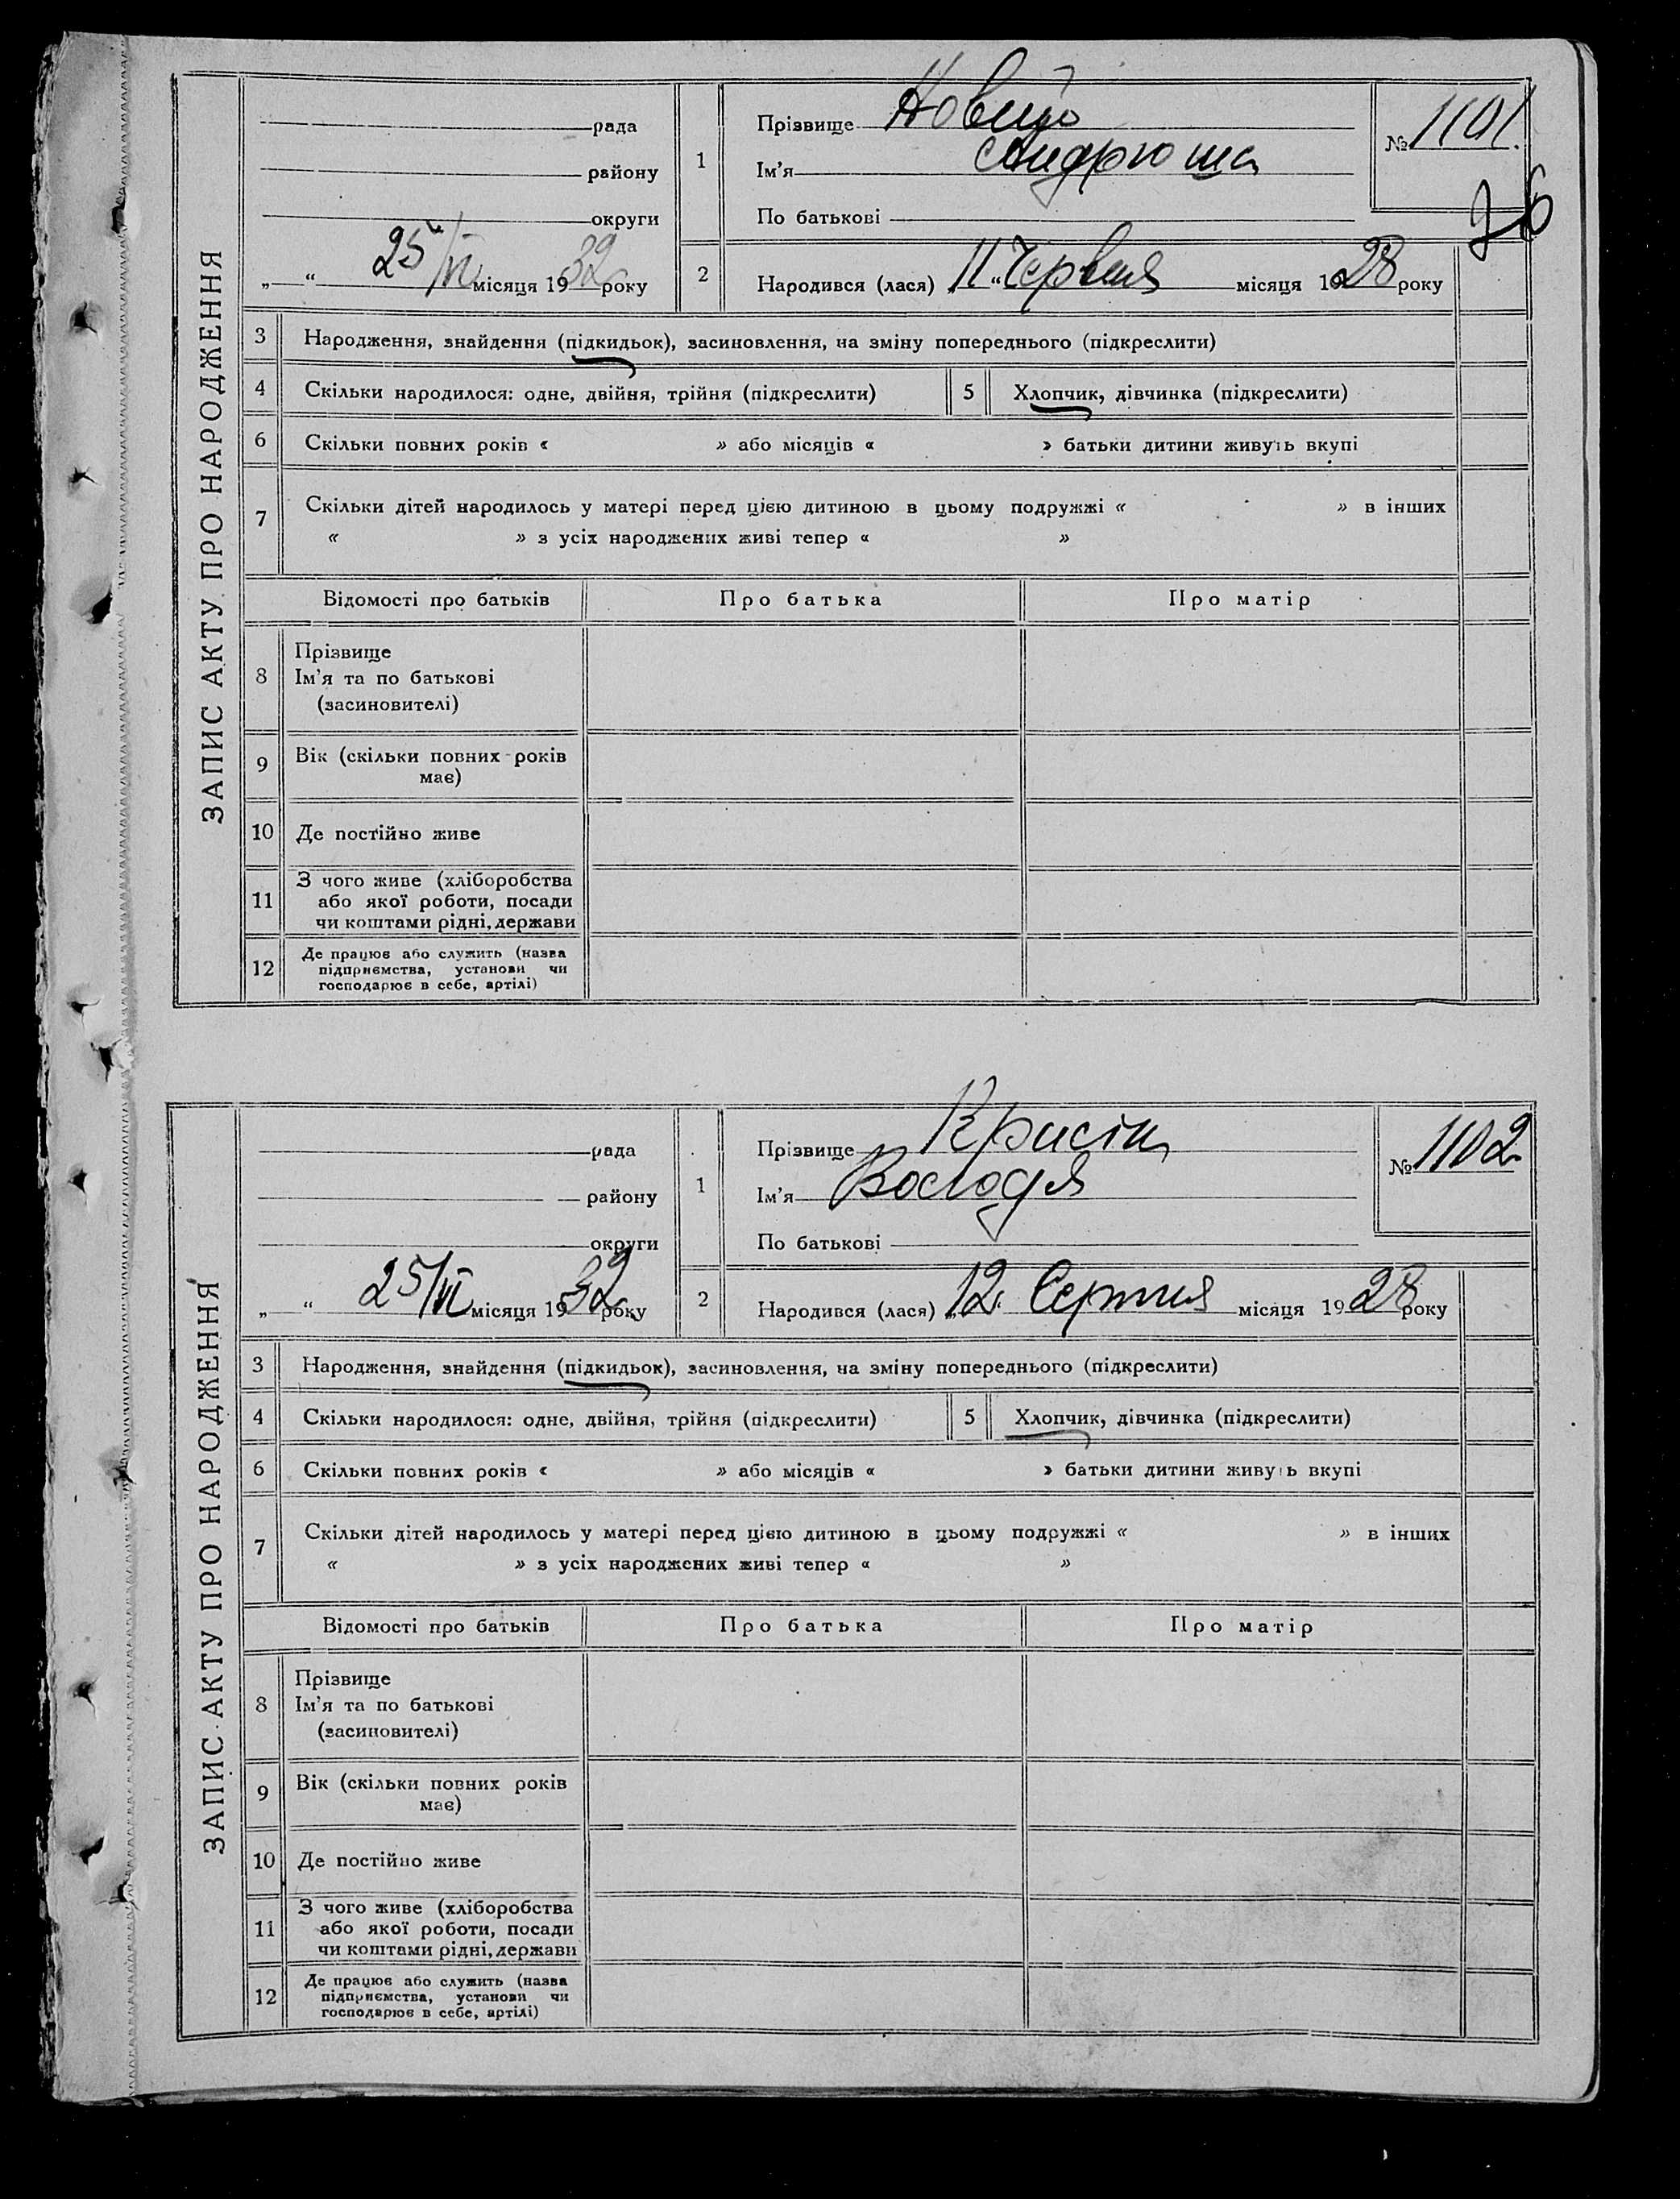 ЗАПИС АКТУ ПРО НАРОДЖЕННЯ
рада
району
округи
25/VI місяця 1932 року
1
Прізвище Новий
Ім'я Андрюша
По батькові
№ 1101.
76
2
Народився (лася) „11“ Червня місяця 1928 року
3 Народження, знайдення (підкидьок), засиновлення, на зміну попереднього (підкреслити)
4 Скільки народилося: одне, двійня, трійня (підкреслити) 5 Хлопчик, дівчинка (підкреслити)
6 Скільки повних років « » або місяців « » батьки дитини живуть вкупі
7 Скільки дітей народилось у матері перед цією дитиною в цьому подружжі « » в інших
« » з усіх народжених живі тепер « »
Відомості про батьків Про батька Про матір
8 Прізвище
Ім'я та по батькові
(засиновителі)
9 Вік (скільки повних років
має)
10 Де постійно живе
11 З чого живе (хліборобства
або якої роботи, посади
чи коштами рідні, держави
12 Де працює або служить (назва
підприємства, установи чи
господарює в себе, артілі)
ЗАПИС АКТУ ПРО НАРОДЖЕННЯ
рада
району
округи
„ “ 25/VI місяця 1932 року
1
Прізвище
Ім'я Володя
По батькові
№ 1102
2
Народився (лася) „12. Серпня місяця 1928 року
3 Народження, знайдення (підкидьок), засиновлення, на зміну попереднього (підкреслити)
4 Скільки народилося: одне, двійня, трійня (підкреслити) 5 Хлопчик, дівчинка (підкреслити)
6 Скільки повних років « » або місяців « » батьки дитини живуть вкупі
7 Скільки дітей народилось у матері перед цією дитиною в цьому подружжі « » в інших
« » з усіх народжених живі тепер « »
Відомості про батьків Про батька Про матір
8 Прізвище
Ім'я та по батькові
(засиновителі)
9 Вік (скільки повних років
має)
10 Де постійно живе
11 З чого живе (хліборобства
або якої роботи, посади
чи коштами рідні, держави
12 Де працює або служить (назва
підприємства, установи чи
господарює в себе, артілі)